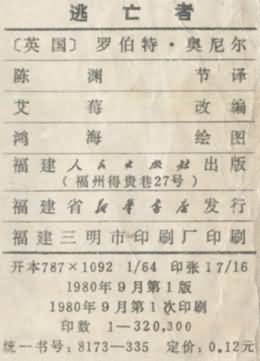 逃亡者
〔英国〕罗伯特·奥尼尔
陈渊 节译
艾莓 改编
鸿海 绘图
福建人民出版社出版
(福州得贵巷27号)
福建省新华书店发行
福建三明市印刷厂印刷
开本787×1092 1/64 印张1 7/16
1980年9月第1版
1980年9月第1次印刷
印数 1—320,300
统一书号:8173—335 定价:0.12元